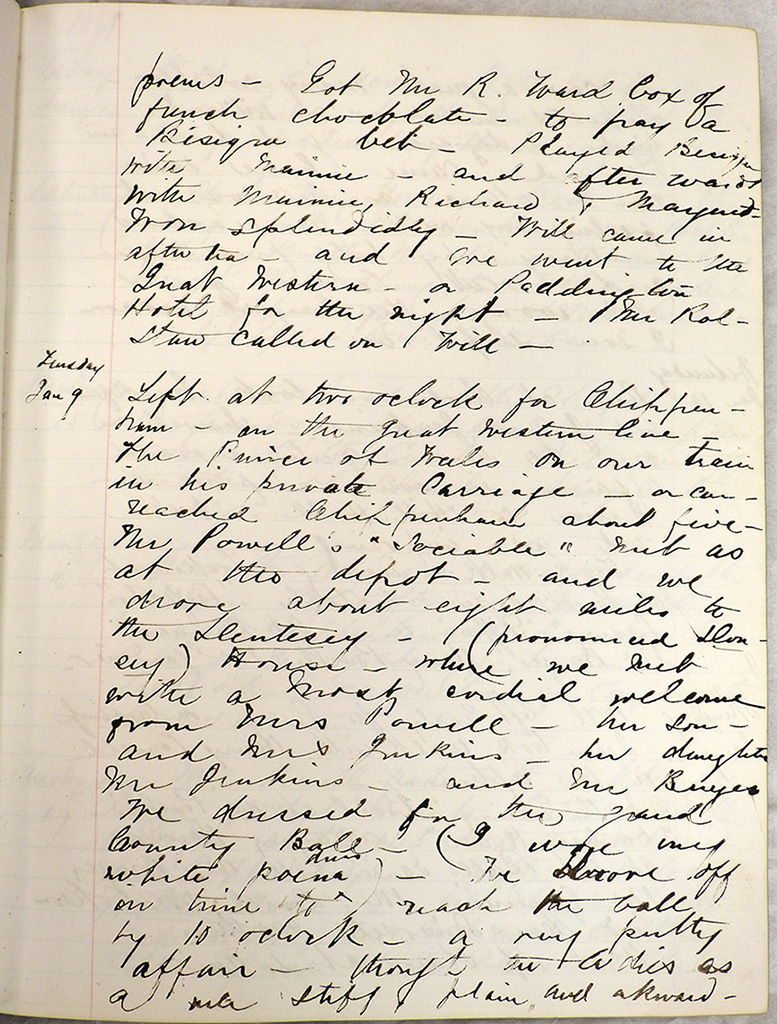 poems - Got Mr R. Ward box of
french chocolate - to pay a
Bisique bet - Played Besique
with Mainie - and after wards
with Mainie, Richard & Margaret-
Won splendidly - Will came in
after tea - and we went to the
Great Western - or Paddington
Hotel for the night - Mr Ral-
ston called on Will -
Tuesday
Jan 9
Left at two oclock for Chippen-
ham - on the great western line -
the Prince of Wales on our train
in his private Carriage - or car -
reached Chippenham about five -
Mr Powell's "Sociable" met us
at the depot - and we
drove about eight miles to
the - (pronounced Slon-
sey) House - where we met
with a most cordial welcome
from Mrs Powell - her son -
and Mrs Jenkins - her daughter
Mr Jenkins - and Mr
We dressed for the grand
County Ball - (I wore my
white dress) - We drove off
in time to reach the ball
by 10 oclock - a very pretty
affair - though the ladies as
a rule stiff, plain, and akward -